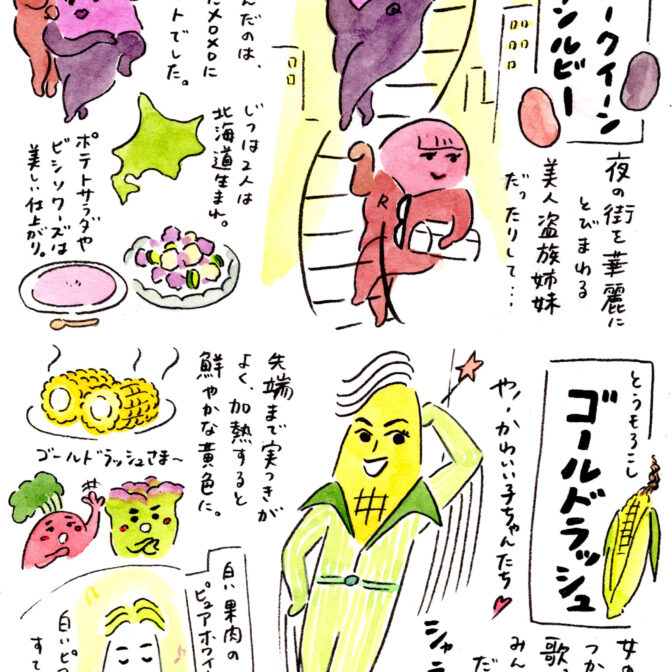 ークイーン
ンルビー
夜の街を華麗に
とびまわる
美人盗族姉妹
だったりして…
Q
R
んだのは、
だメロメロに
ートでした。
じつは2人は
北海道生まれ。
ポテトサラダや
ビシソワーズは
美しい仕上がり。
とうもろこし
ゴールドラッシュ
や、かわいい子ちゃんたち
シャラ
女の
つか
歌
みん
だ
先端まで実つきが
よく、加熱すると
鮮やかな黄色に。
ゴールドラッシュさま〜
白い果肉の
ピュアホワイ
白いピ
すて